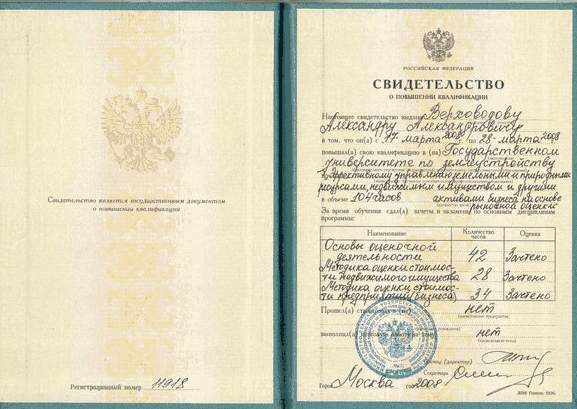 Свидетельство является государственным документом
о повышении квалификации
Регистрационный номер 11918
РОССИЙСКАЯ ФЕДЕРАЦИЯ
СВИДЕТЕЛЬСТВО
О ПОВЫШЕНИИ КВАЛИФИКАЦИИ
Настоящее свидетельство выдано Верховодову
Александру Александровичу
в том, что он(а) с 17 марта 2008 по 28 марта 2008
повышал(а) свою квалификацию в (на) Государственном
университете по землеустройству
Эффективному управлению земельными и природными
ресурсами, недвижимым имуществом и другими
в объеме 104 часов активами бизнеса на основе
рыночной оценки
За время обучения сдал(а) зачеты и экзамены по основным дисциплинам
программы:
Наименование Количество часов Оценка
Основы оценочной
деятельности 42 Зачтено
Методика оценки стоимос-
ти недвижимого имущества 28 Зачтено
Методика оценки стоимос-
ти предприятия (бизнеса) 34 Зачтено
Прошел(а) нет
выполнил(а) нет
Секретарь
Город Москва 2008